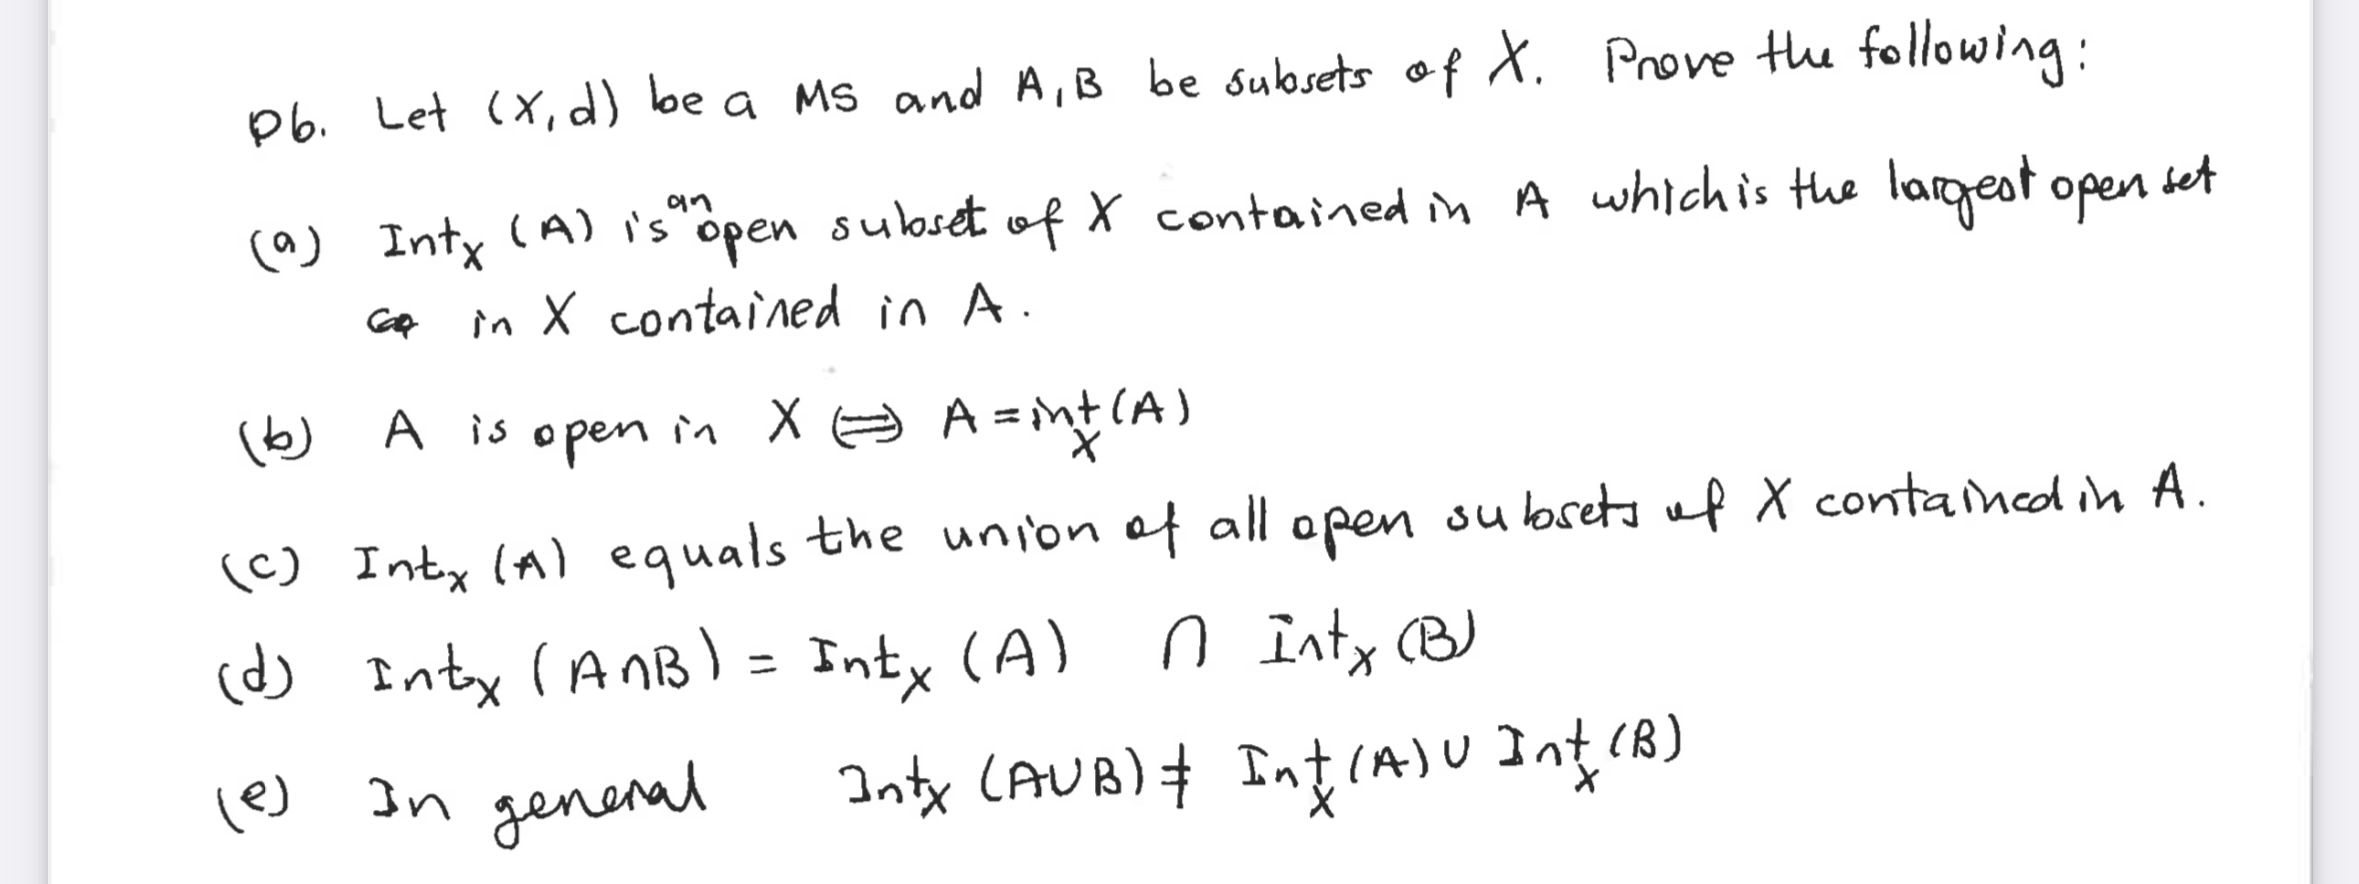 P6. Let (X,d) be a MS and A,B be subsets of X. Prove the following:
(a) Int_X (A) is an open subset of X contained in A which is the largest open set
in X contained in A.
(b) A is open in X ⟺ A = int_X (A)
(c) Int_X (A) equals the union of all open subsets of X contained in A.
(d) Int_X (A∩B) = Int_X (A) ∩ Int_X (B)
(e) In general Int_X (A∪B) ≠ Int_X (A) ∪ Int_X (B)